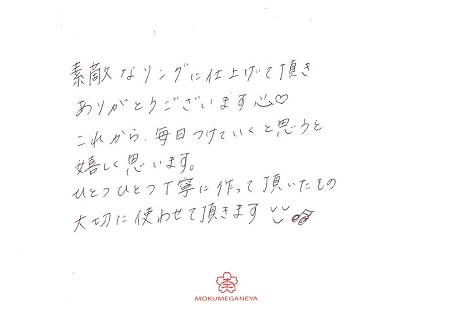 素敵なリングに仕上げて頂き
ありがとうございます♡
これから、毎日つけていくと思うと
嬉しく思います。
ひとつひとつ丁寧に作って頂いたもの
大切に使わせて頂きます
MOKUMEGANEYA